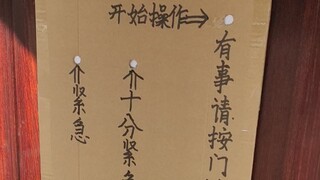 开始操作⇒
有事请按门
↑十分紧急
↑紧急